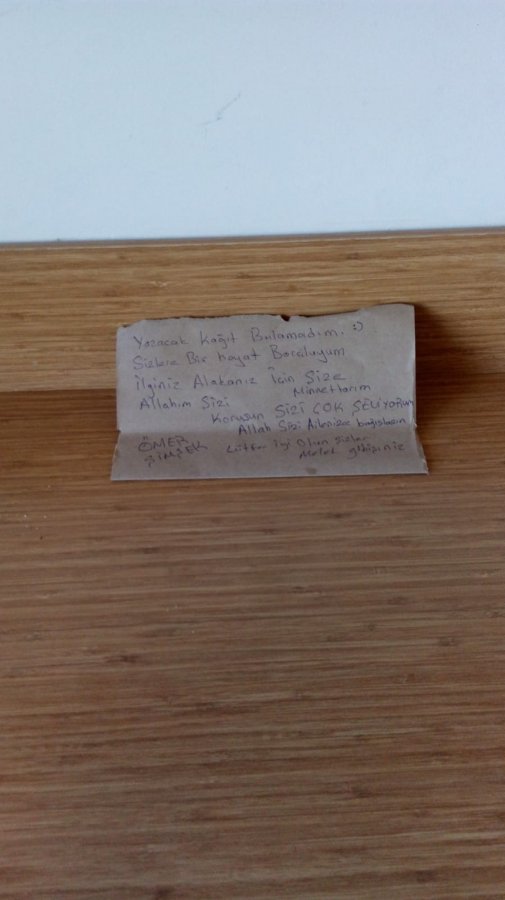 Yazacak Kağıt Bulamadım. :)
Sizlere Bir hayat Borçluyum
İlginiz Alakanız İçin Size
Minnettarım
Allahım Sizi
Korusun SİZİ ÇOK SEVİYORUM
Allah Sizi Ailenize bağışlasın
ÖMER Lütfen iyi Olun sizler
ŞİMŞEK Melek gibisiniz